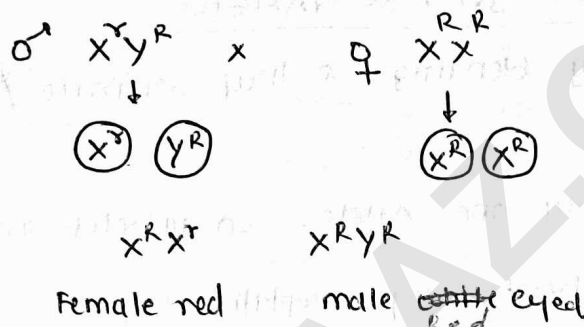 ♂ XʳYᴿ x ♀ XᴿXᴿ
↓ ↓
Xʳ Yᴿ Xᴿ Xᴿ
XᴿXʳ XᴿYᴿ
Female red male eyed
Red